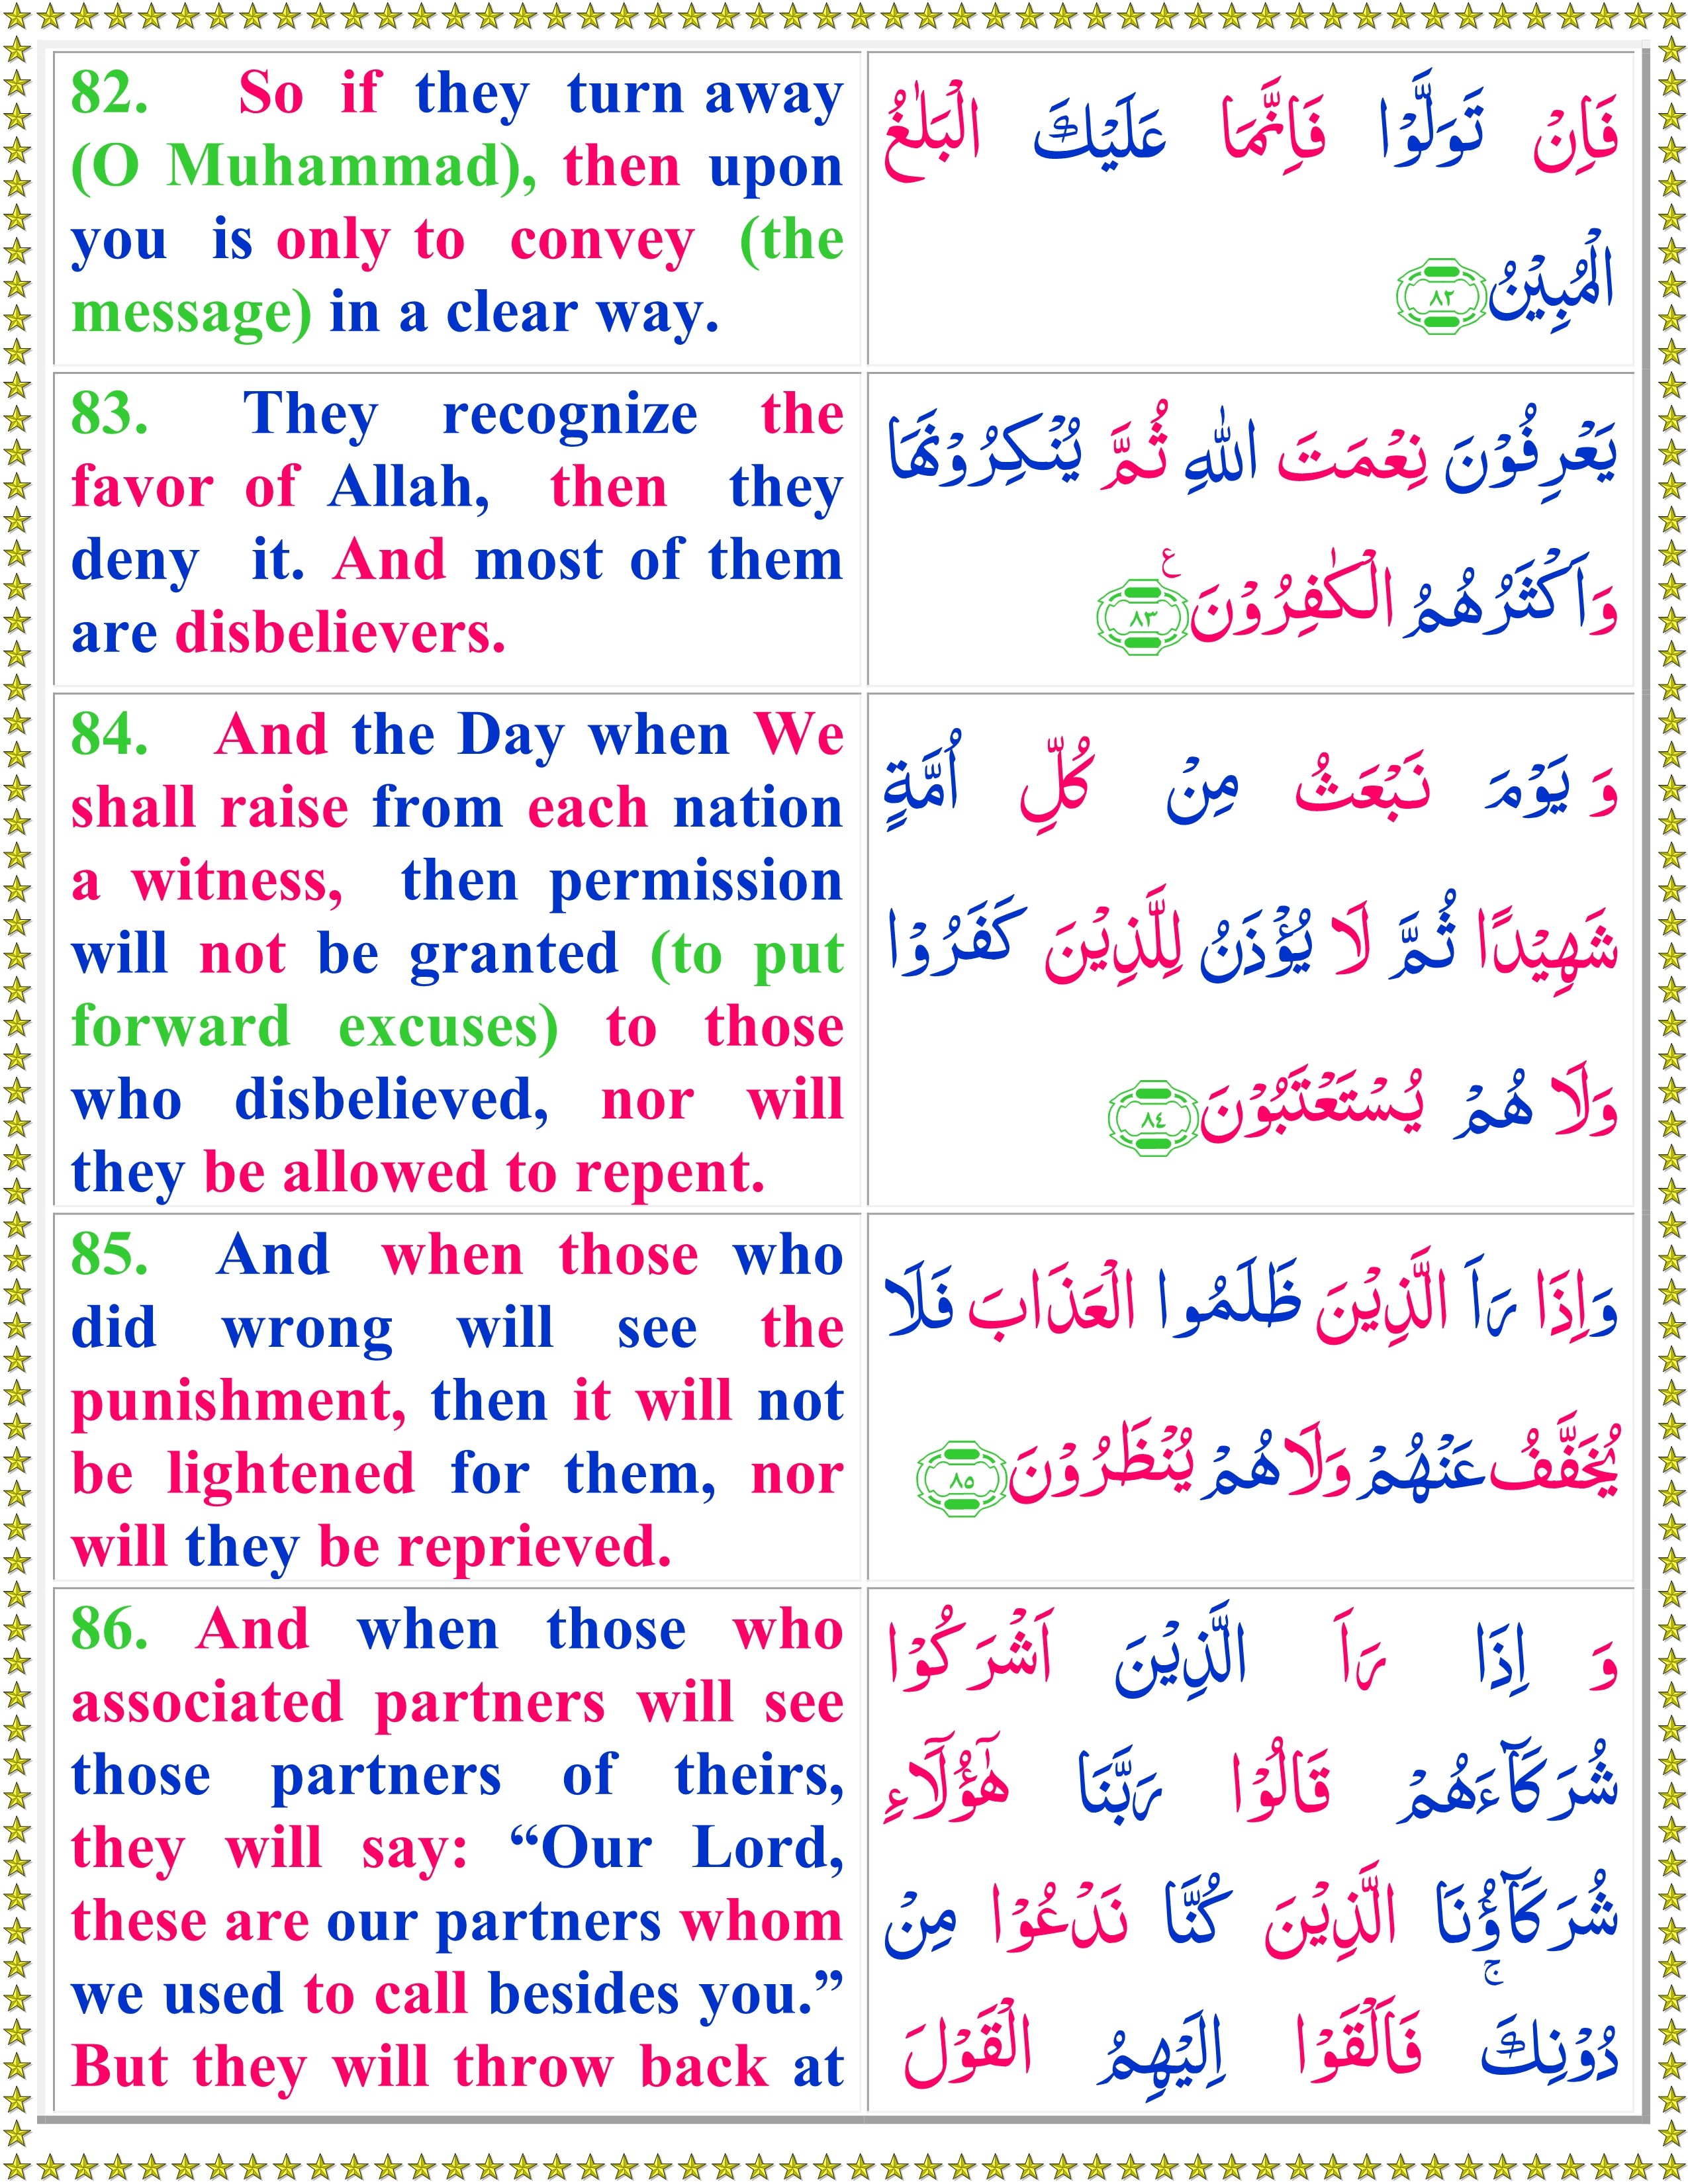 82. So if they turn away
(O Muhammad), then upon
you is only to convey (the
message) in a clear way.
فَاِنْ تَوَلَّوْا فَاِنَّمَا عَلَيْكَ الْبَلٰغُ
الْمُبِيْنُ ﴿٨٢﴾
83. They recognize the
favor of Allah, then they
deny it. And most of them
are disbelievers.
يَعْرِفُوْنَ نِعْمَتَ اللّٰهِ ثُمَّ يُنْكِرُوْنَهَا
وَاَكْثَرُهُمُ الْكٰفِرُوْنَ ﴿٨٣﴾ ع
84. And the Day when We
shall raise from each nation
a witness, then permission
will not be granted (to put
forward excuses) to those
who disbelieved, nor will
they be allowed to repent.
وَ يَوْمَ نَبْعَثُ مِنْ كُلِّ اُمَّةٍ
شَهِيْدًا ثُمَّ لَا يُؤْذَنُ لِلَّذِيْنَ كَفَرُوْا
وَلَا هُمْ يُسْتَعْتَبُوْنَ ﴿٨٤﴾
85. And when those who
did wrong will see the
punishment, then it will not
be lightened for them, nor
will they be reprieved.
وَاِذَا رَاَ الَّذِيْنَ ظَلَمُوا الْعَذَابَ فَلَا
يُخَفَّفُ عَنْهُمْ وَلَا هُمْ يُنْظَرُوْنَ ﴿٨٥﴾
86. And when those who
associated partners will see
those partners of theirs,
they will say: “Our Lord,
these are our partners whom
we used to call besides you.”
But they will throw back at
وَ اِذَا رَاَ الَّذِيْنَ اَشْرَكُوْا
شُرَكَآءَهُمْ قَالُوْا رَبَّنَا هٰٓؤُلَآءِ
شُرَكَآؤُنَا الَّذِيْنَ كُنَّا نَدْعُوْا مِنْ
دُوْنِكَ ۚ فَاَلْقَوْا اِلَيْهِمُ الْقَوْلَ